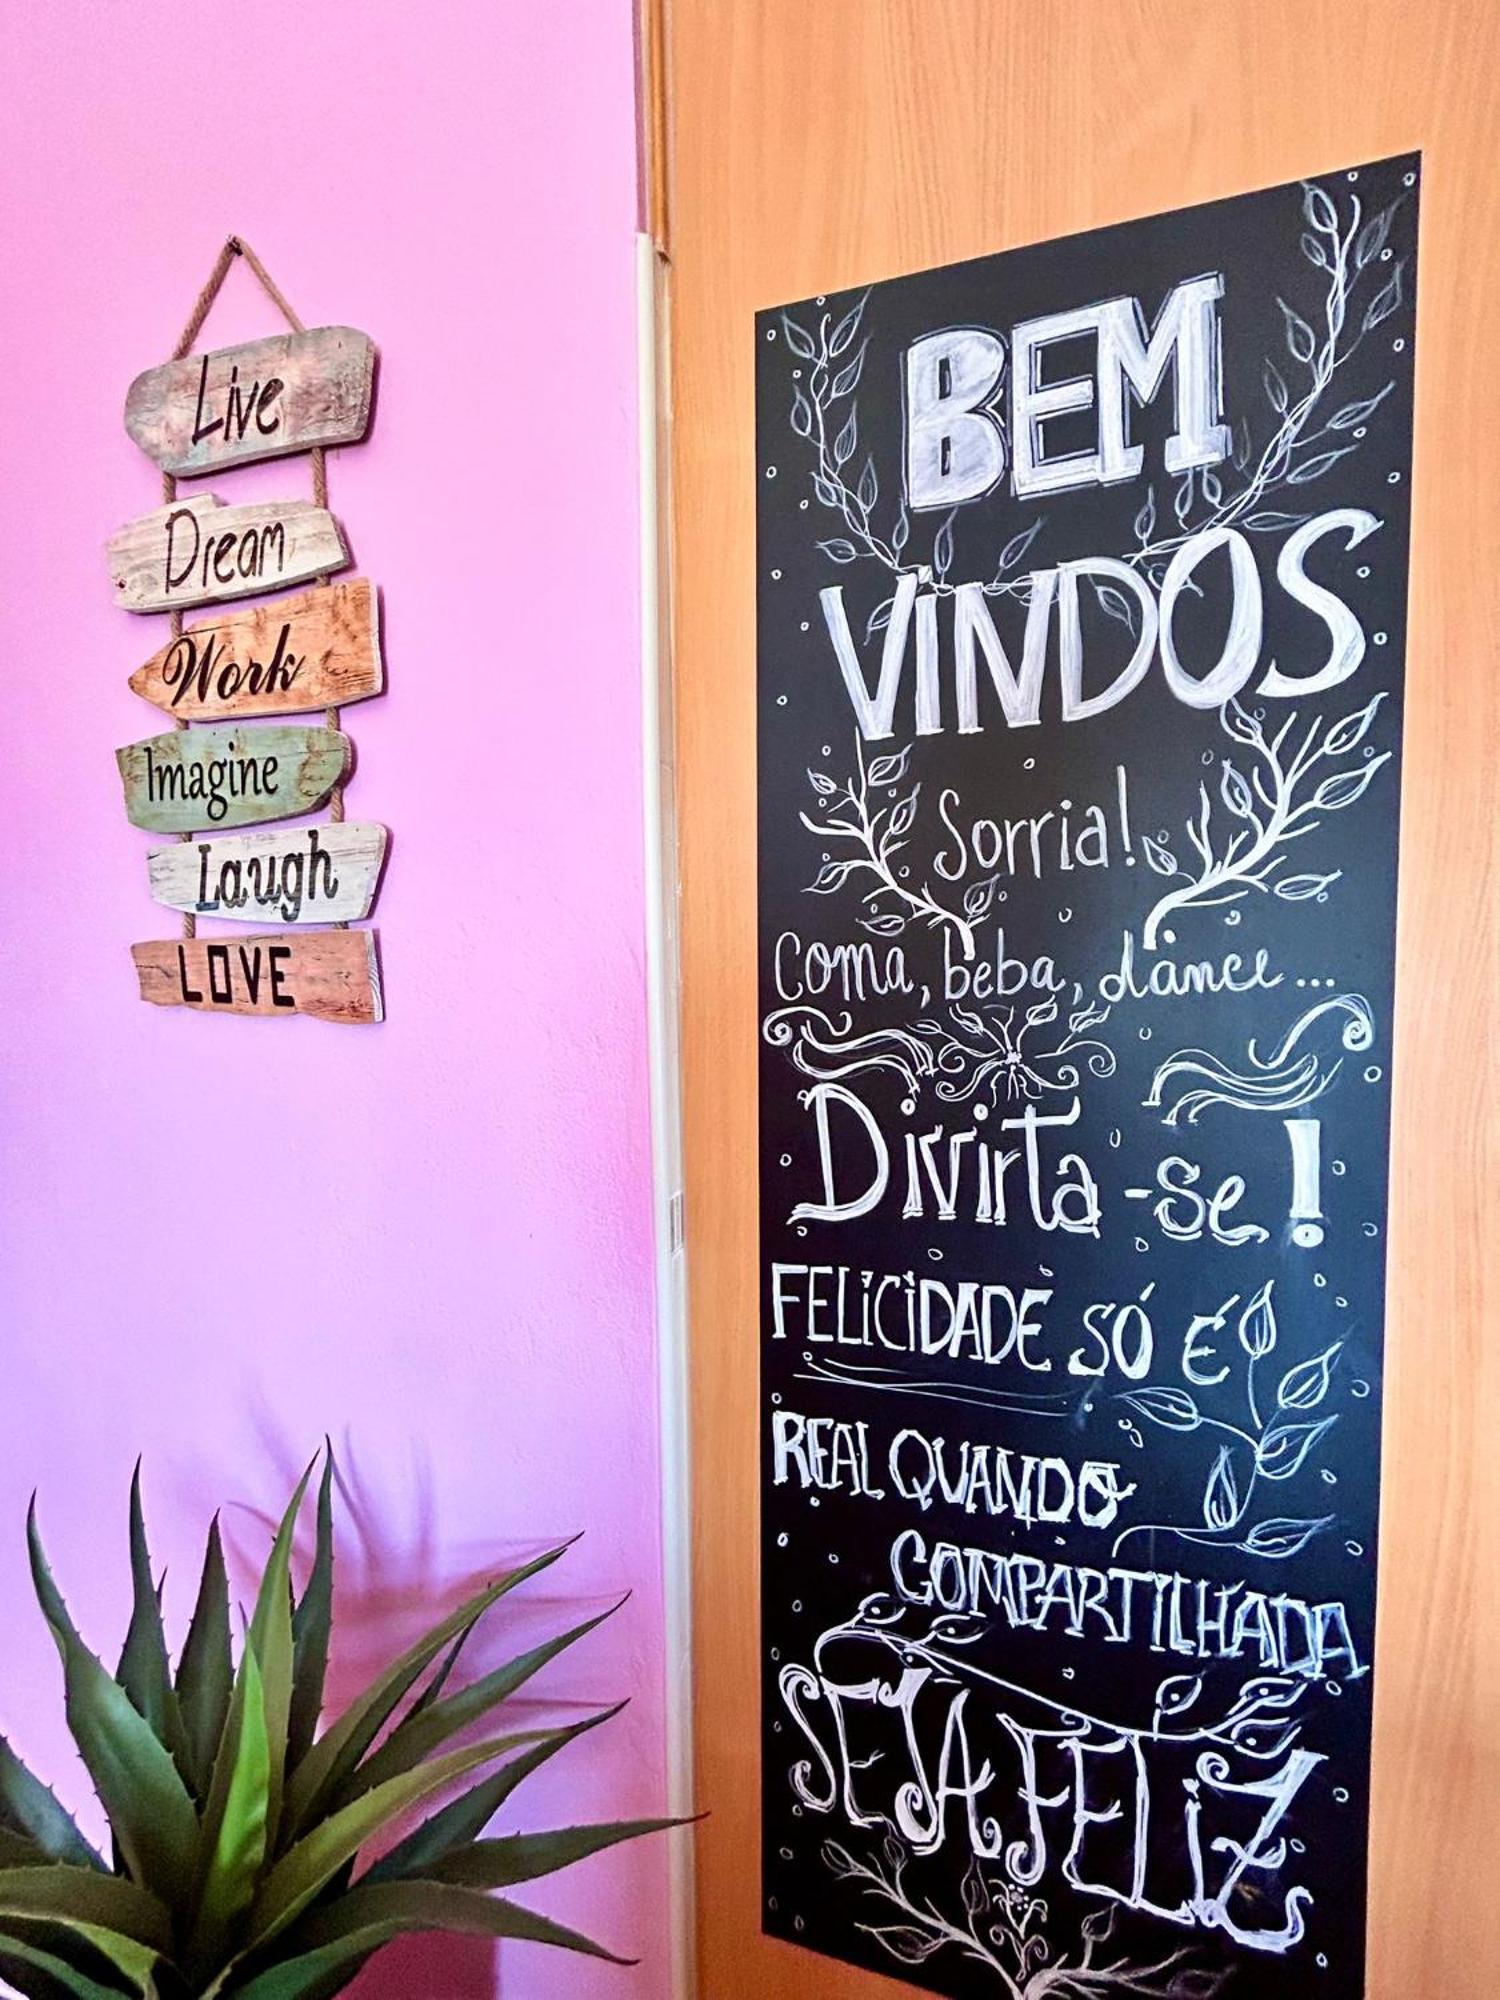 Live
Dream
Work
Imagine
Laugh
LOVE
BEM
VINDOS
Sorria!
Coma, beba, dance...
Divirta-se!
FELICIDADE SÓ É
REAL QUANDO
COMPARTILHADA
SEJA FELIZ